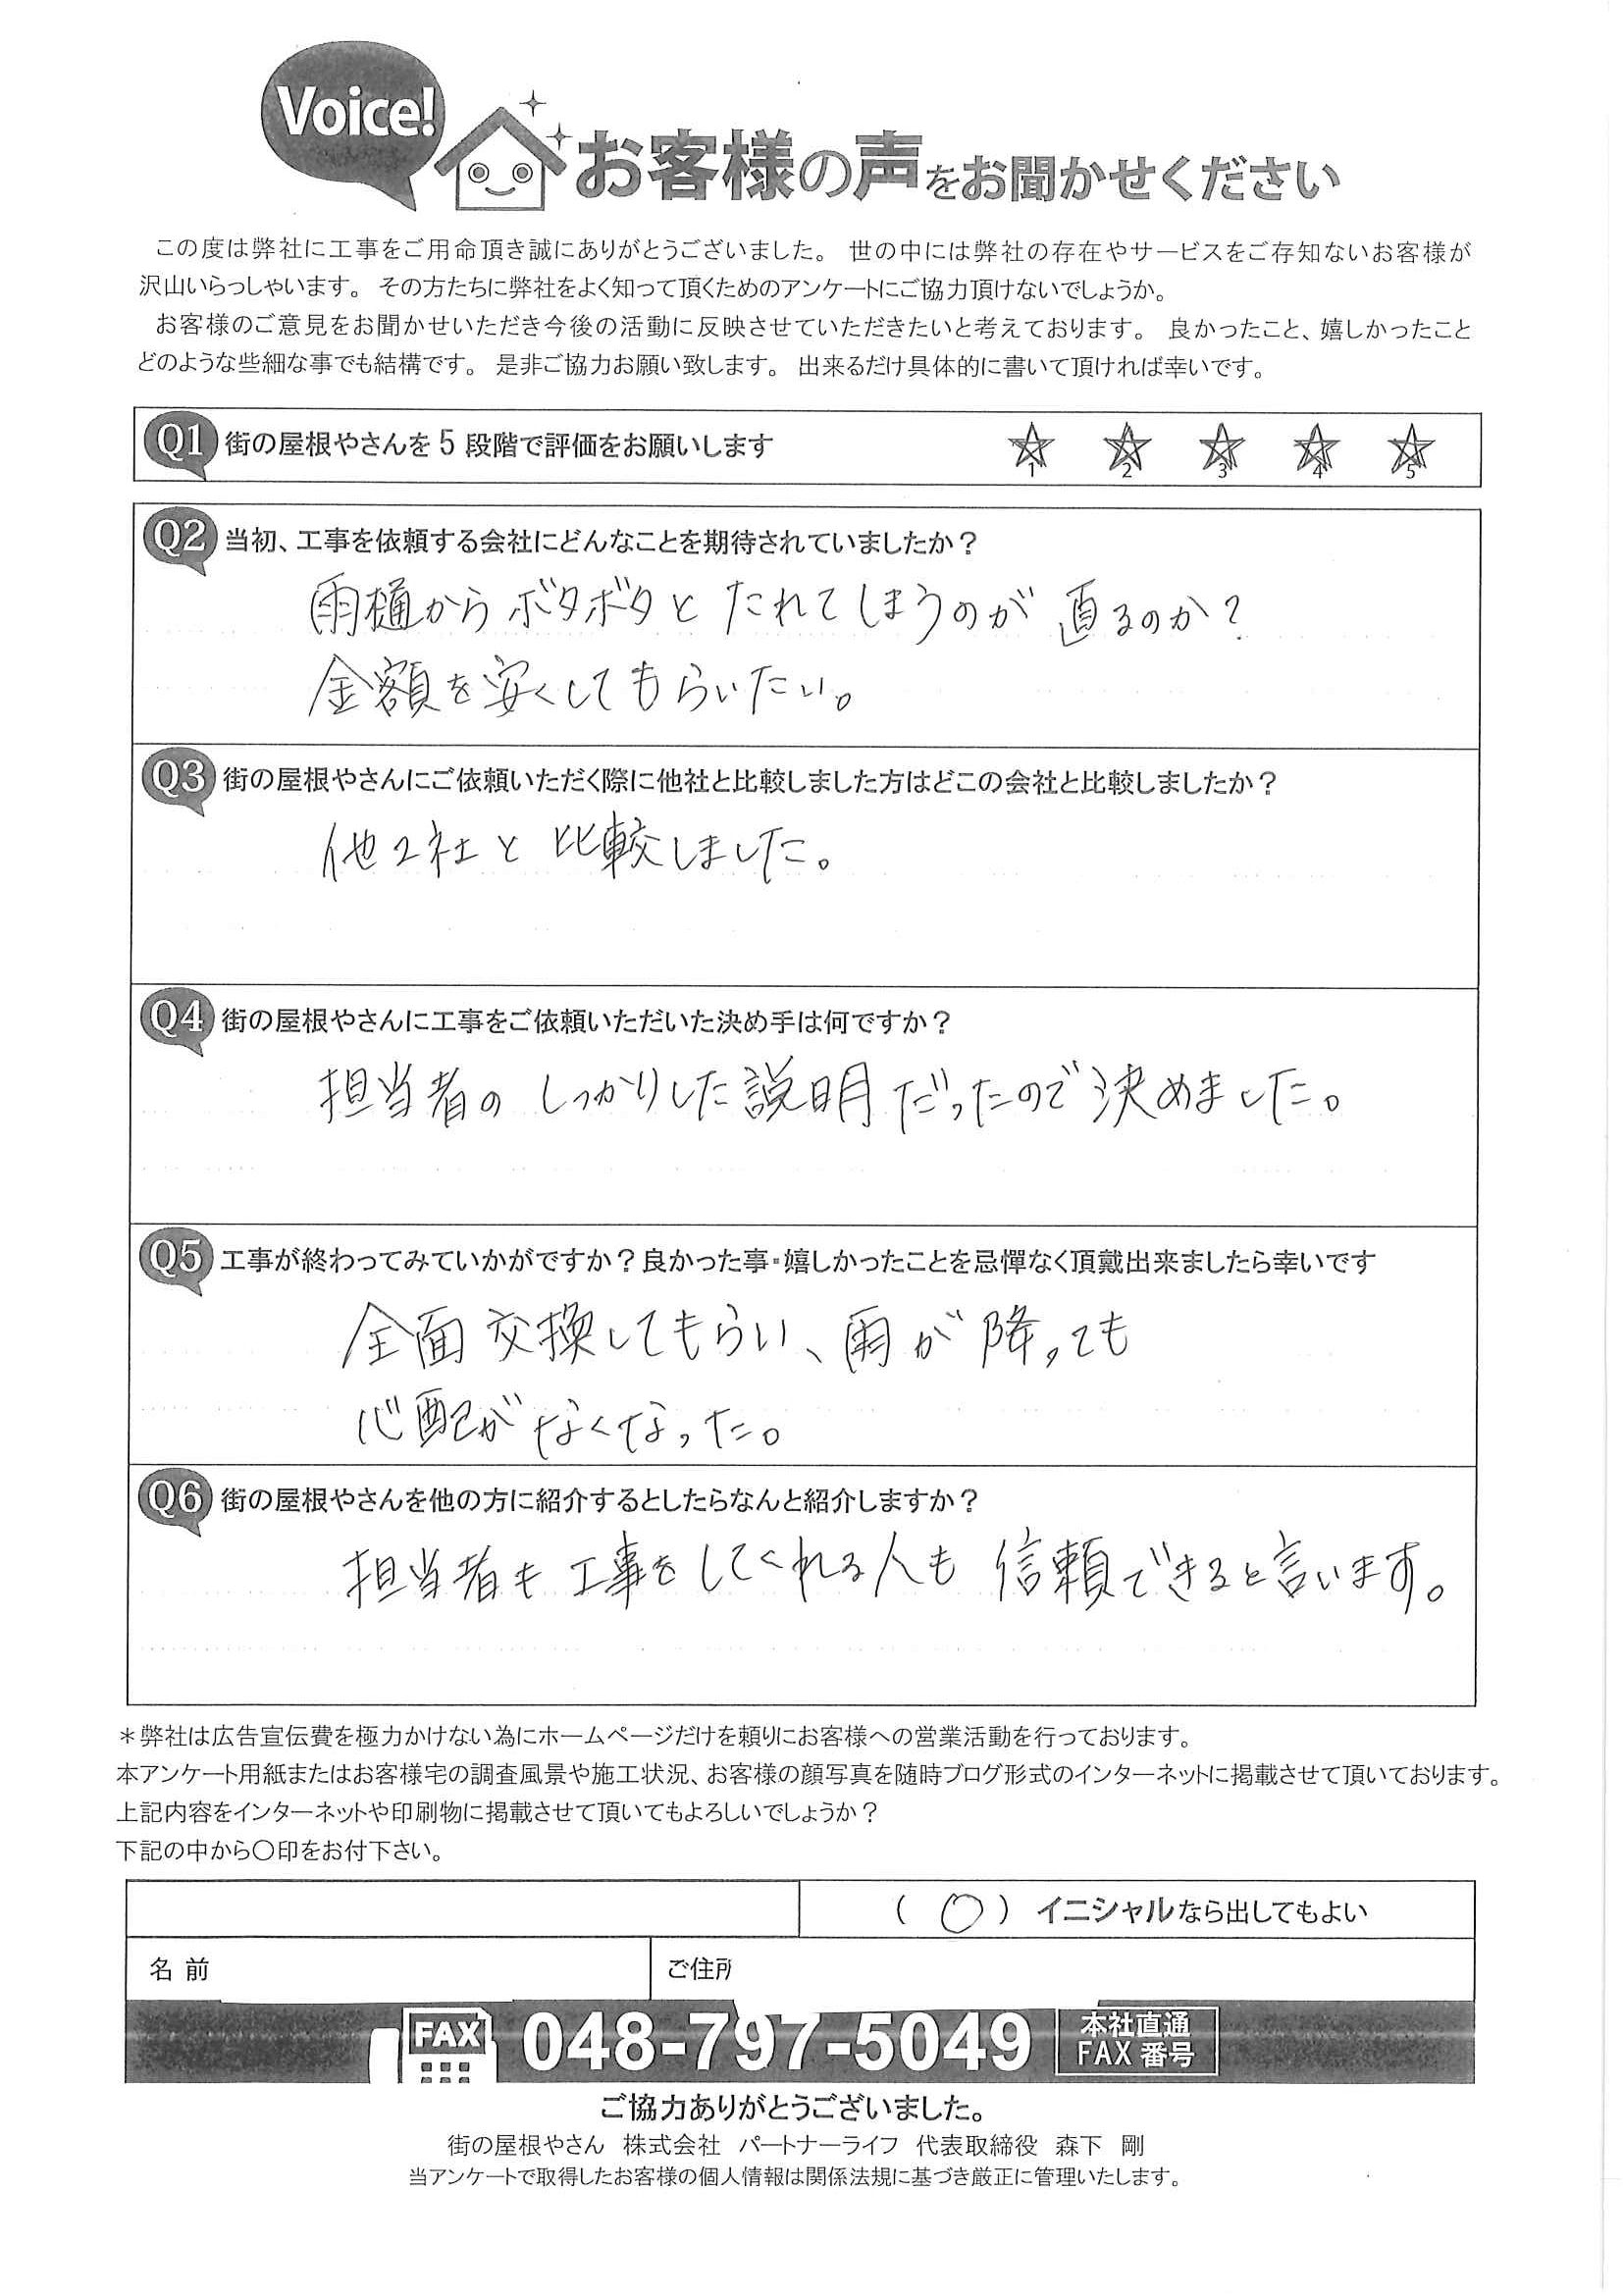 Voice!
お客様の声をお聞かせください
この度は弊社に工事をご用命頂き誠にありがとうございました。 世の中には弊社の存在やサービスをご存知ないお客様が
沢山いらっしゃいます。 その方たちに弊社をよく知って頂くためのアンケートにご協力頂けないでしょうか。
お客様のご意見をお聞かせいただき今後の活動に反映させていただきたいと考えております。 良かったこと、嬉しかったこと
どのような些細な事でも結構です。 是非ご協力お願い致します。 出来るだけ具体的に書いて頂ければ幸いです。
Q1 街の屋根やさんを 5 段階で評価をお願いします 1 2 3 4 5
Q2 当初、工事を依頼する会社にどんなことを期待されていましたか？
雨樋からボタボタと たれてしまうのが 直るのか？
金額を安くしてもらいたい。
Q3 街の屋根やさんにご依頼いただく際に他社と比較しました方はどこの会社と比較しましたか？
他2社と 比較しました。
Q4 街の屋根やさんに工事をご依頼いただいた決め手は何ですか？
担当者の しっかりした説明だったので決めました。
Q5 工事が終わってみていかがですか？良かった事・嬉しかったことを忌憚なく頂戴出来ましたら幸いです
全面交換してもらい、雨が降っても
心配がなくなった。
Q6 街の屋根やさんを他の方に紹介するとしたらなんと紹介しますか？
担当者も工事をしてくれる人も 信頼できると言います。
＊弊社は広告宣伝費を極力かけない為にホームページだけを頼りにお客様への営業活動を行っております。
本アンケート用紙またはお客様宅の調査風景や施工状況、お客様の顔写真を随時ブログ形式のインターネットに掲載させて頂いております。
上記内容をインターネットや印刷物に掲載させて頂いてもよろしいでしょうか？
下記の中から〇印をお付下さい。
（ 〇 ） イニシャルなら出してもよい
名 前 ご住所
FAX 048-797-5049 本社直通
FAX 番号
ご協力ありがとうございました。
街の屋根やさん 株式会社 パートナーライフ 代表取締役 森下 剛
当アンケートで取得したお客様の個人情報は関係法規に基づき厳正に管理いたします。